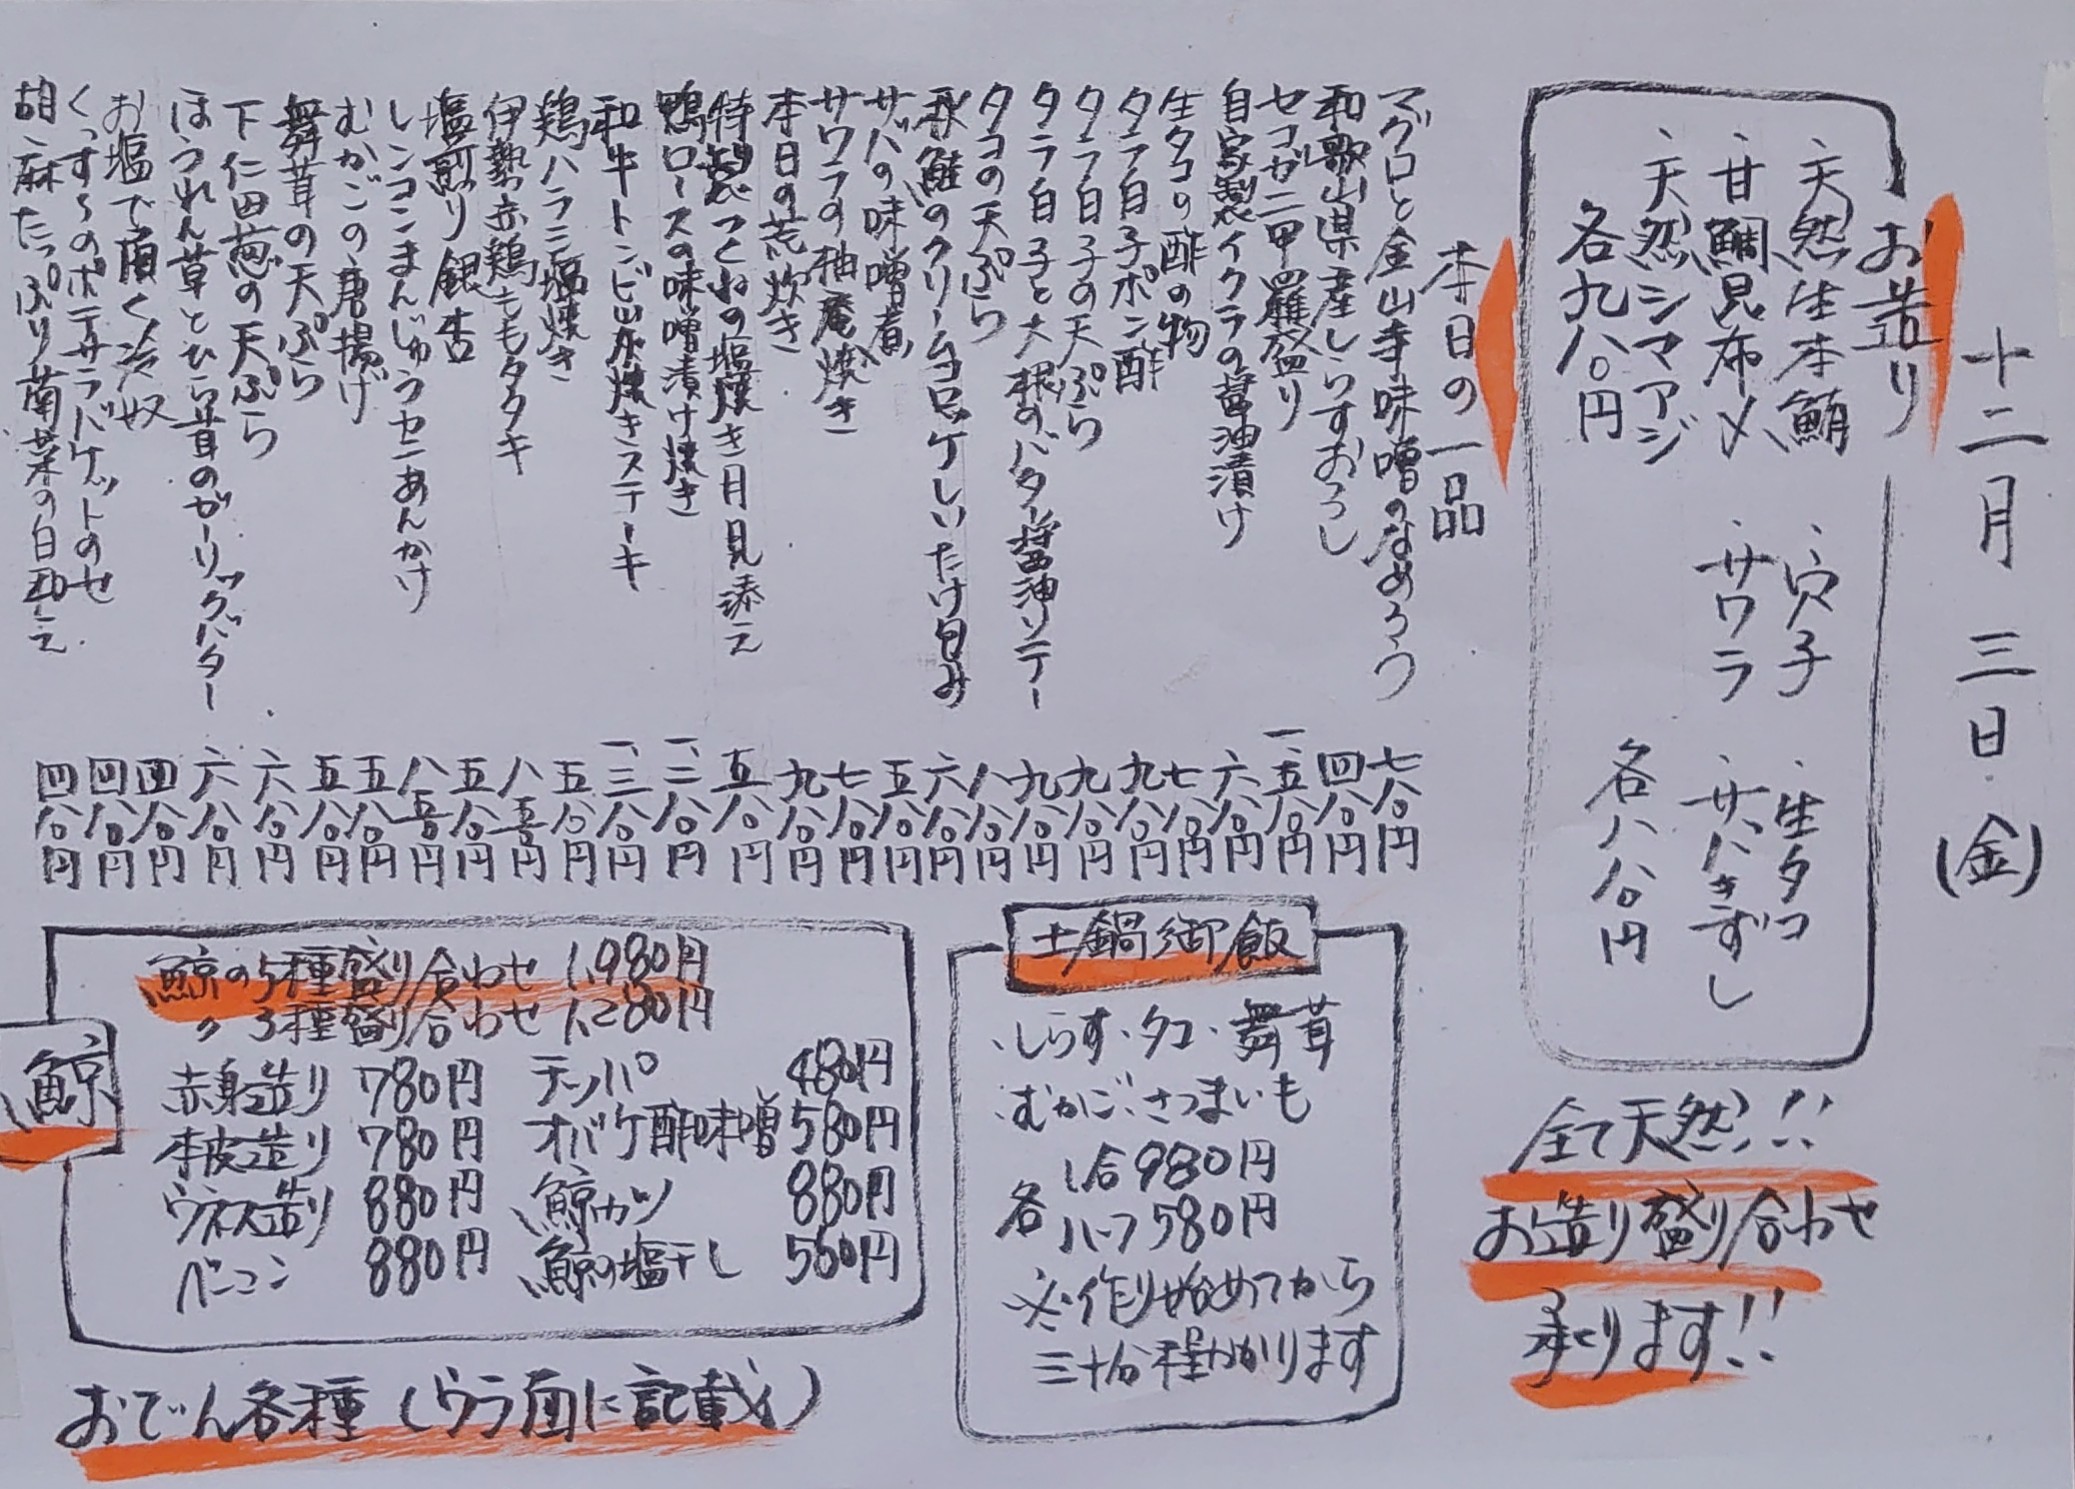 十二月三日(金)
お造り
・天然生本鮪
・甘鯛昆布〆
・天然シマアジ
各九八〇円
・穴子
・サワラ
・生タコ
・サバきずし
各八八〇円
全て天然!!
お造り盛り合わせ
承ります!!
本日の一品
マグロと金山寺味噌のなめろう 七八〇円
和歌山県産しらすおろし 四八〇円
セコガニ甲羅盛り 一、五八〇円
自家製イクラの醤油漬け 六八〇円
生タコの酢の物 七八〇円
タラ白子ポン酢 九八〇円
タラ白子の天ぷら 九八〇円
タラ白子と大根のバター醤油ソテー 九八〇円
タコの天ぷら 八八〇円
秋鮭のクリームコロッケしいたけ包み 六八〇円
サバの味噌煮 五八〇円
サワラの柚庵焼き 七八〇円
本日の荒炊き 九八〇円
特製つくねの塩焼き月見添え 五八〇円
鴨ロースの味噌漬け焼き 一、二八〇円
和牛トンビ炭火焼きステーキ 一、三八〇円
鶏ハラミ塩焼き 五八〇円
伊勢赤鶏ももタタキ 八八〇円
塩煎り銀杏 五八〇円
レンコンまんじゅうセニあんかけ 八八〇円
むかごの唐揚げ 五八〇円
舞茸の天ぷら 五八〇円
下仁田葱の天ぷら 六八〇円
ほうれん草とひら茸のガーリックバター 六八〇円
お塩で頂く冷奴 四八〇円
くっす〜のポテサラバケットのせ 四八〇円
胡麻たっぷり菊菜の白和え 四八〇円
土鍋御飯
・しらす・タコ・舞茸
・むかご・さつまいも
各 1合980円
ハーフ580円
※作り始めてから
三十分程かかります
鯨
鯨の5種盛り合わせ 1,980円
〃 3種盛り合わせ 1,280円
赤身造り 780円
本皮造り 780円
ウネス造り 880円
ベーコン 880円
テッパ 480円
オバケ酢味噌 580円
鯨カツ 880円
鯨の塩干し 560円
おでん各種(ウラ面に記載)